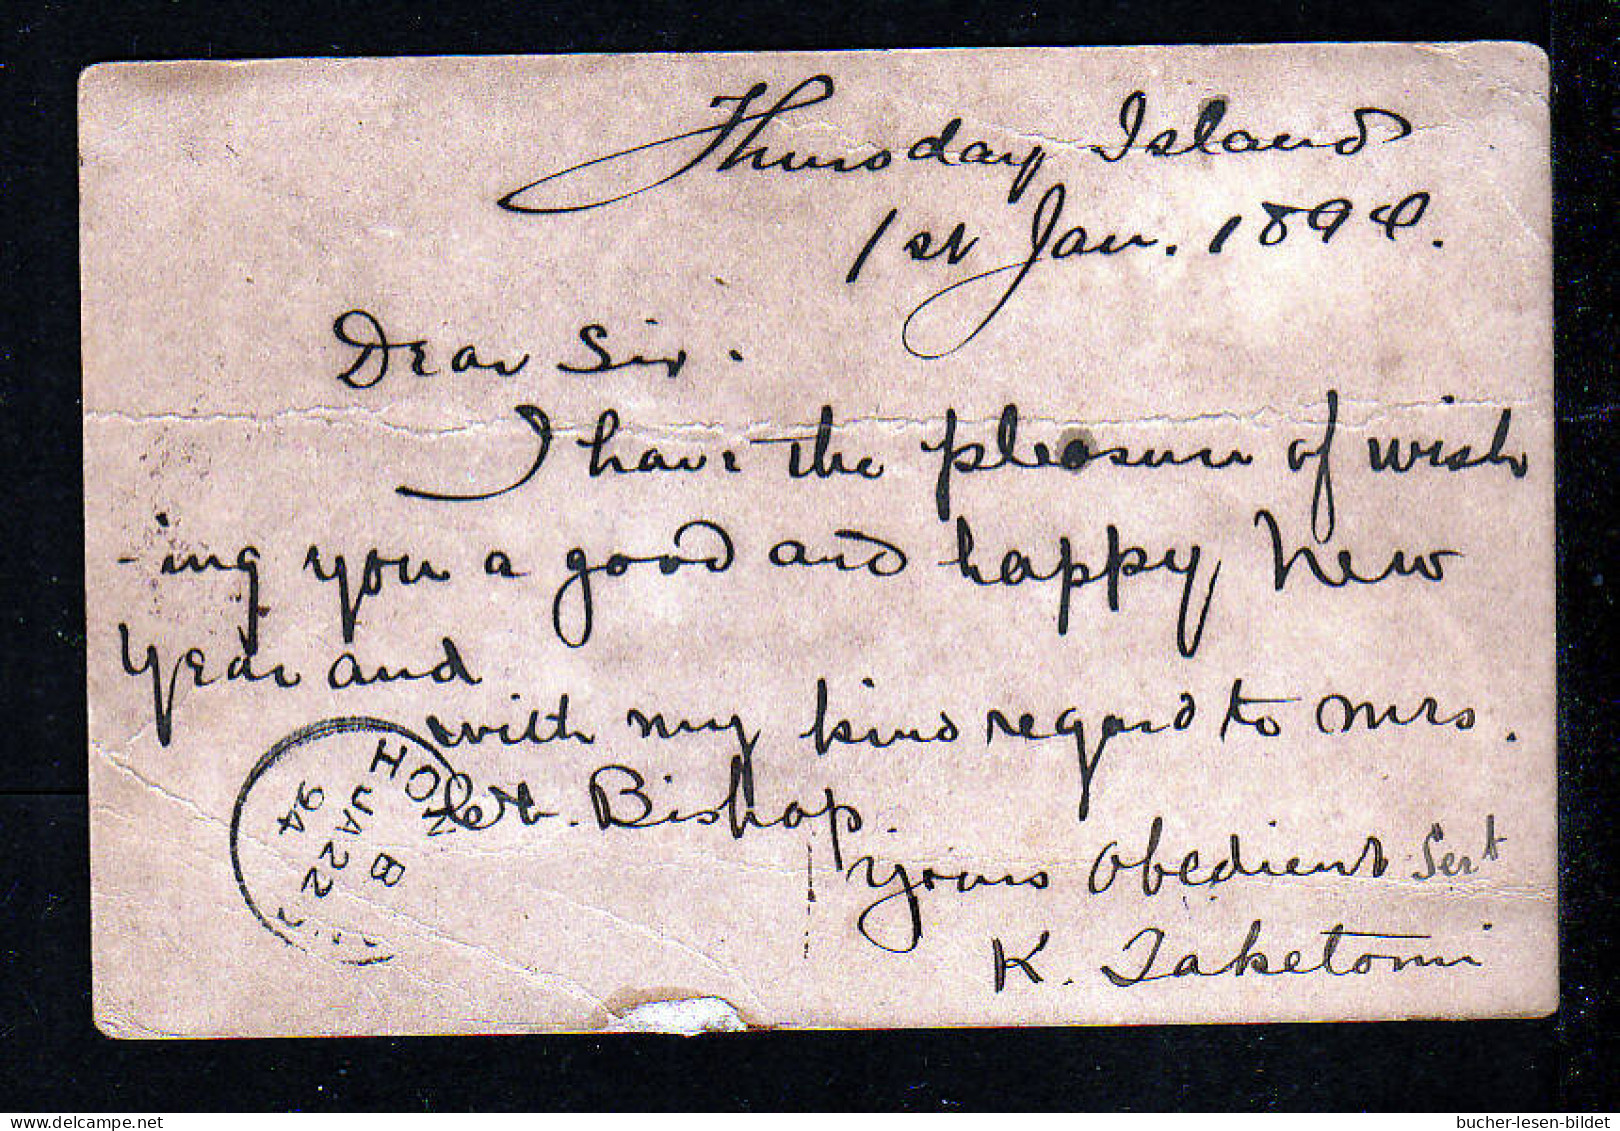 Thursday Island
1st Jan. 1894.
Dear Sir.
I have the pleasure of wish
-ing you a good and happy New
Year and
with my kind regard to Mrs.
Bishop.
Yours Obedient Sert
K. Taketomi
HON
B
JA 22
94
bucher-lesen-bildet